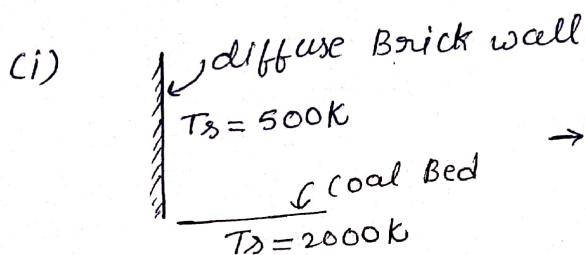 (i)
diffuse Brick wall
Ts = 500K
→
Coal Bed
Ts = 2000K